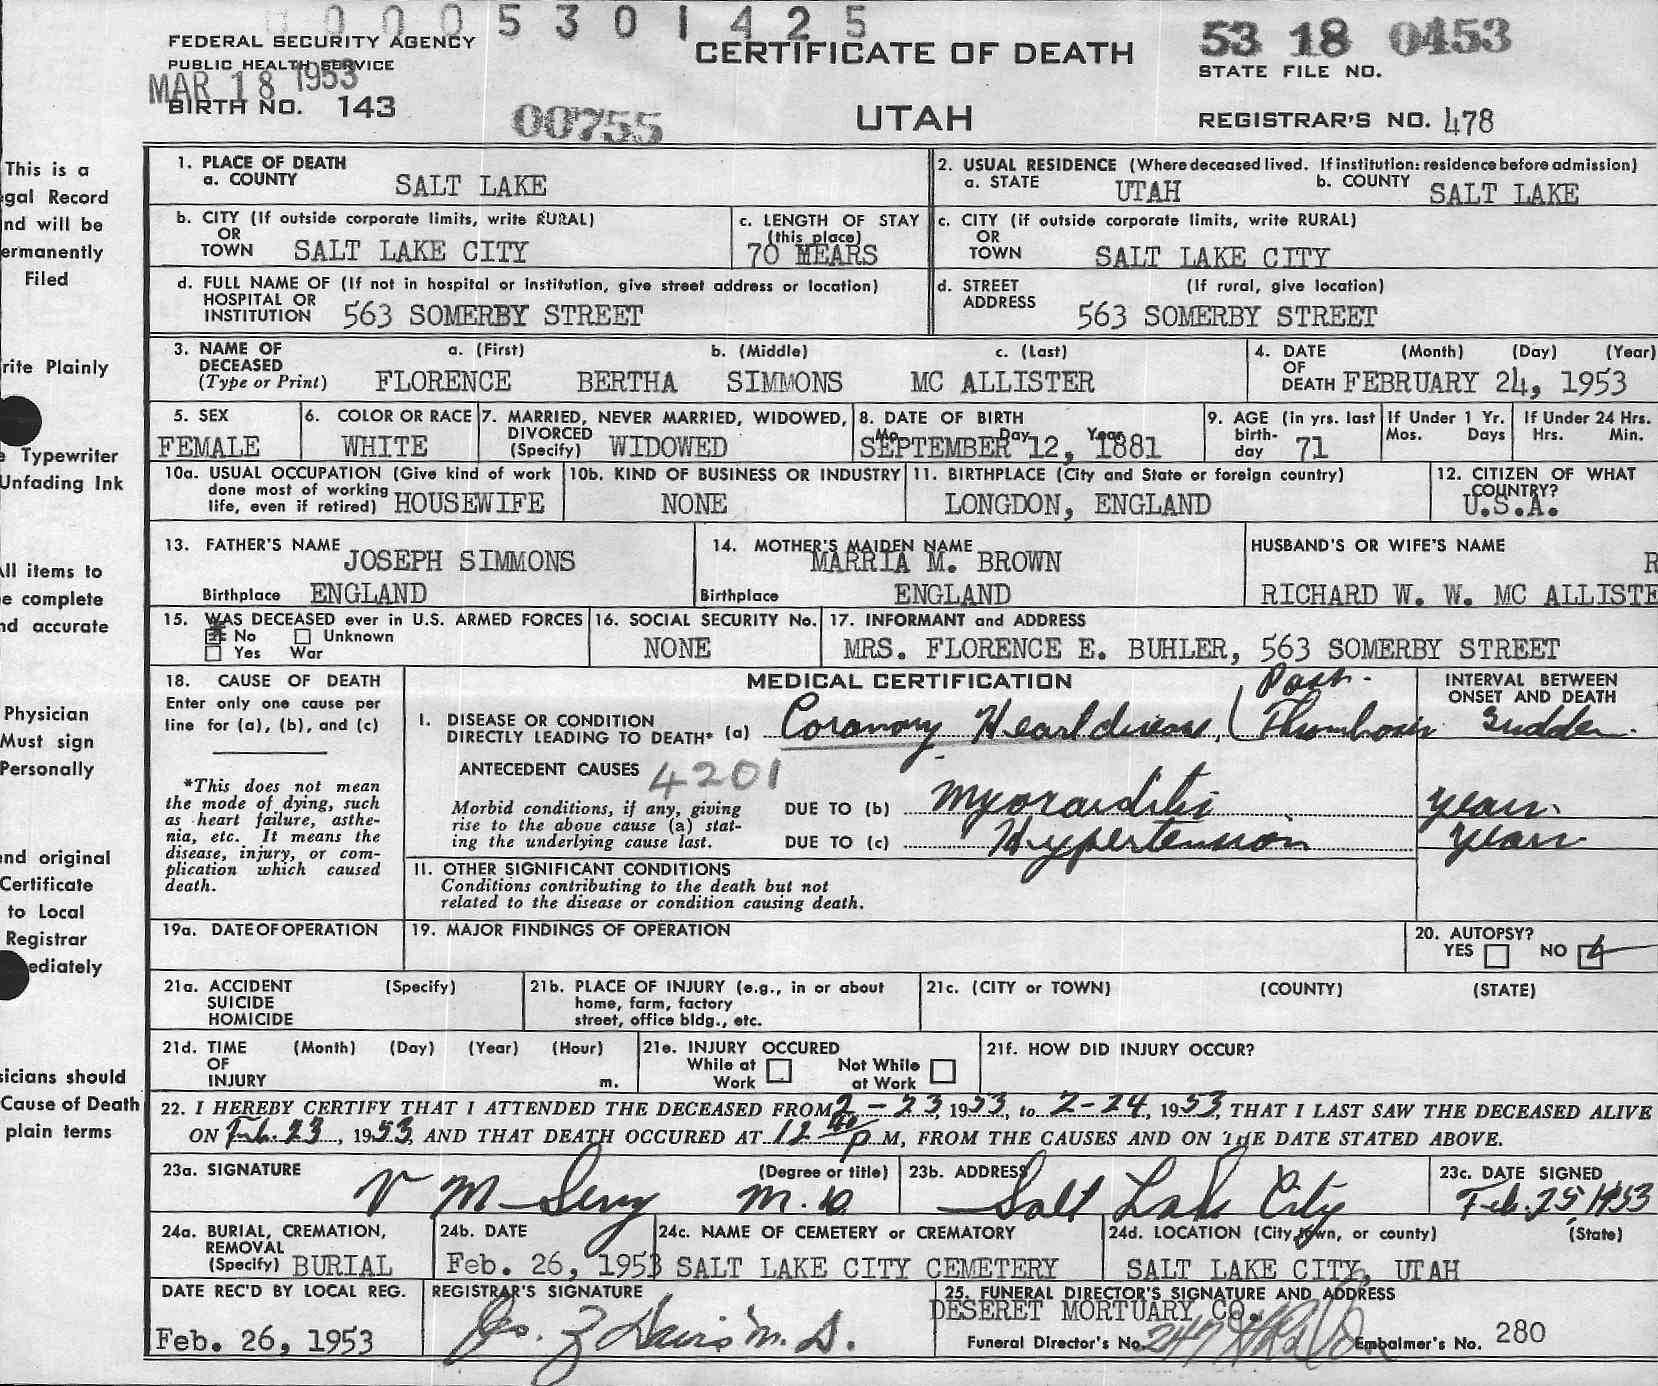 0000 5 3 0 1 4 2 5
FEDERAL SECURITY AGENCY
PUBLIC HEALTH SERVICE
MAR 18 1953
BIRTH NO. 143
00755
CERTIFICATE OF DEATH
UTAH
53 18 0453
STATE FILE NO.
REGISTRAR'S NO. 478
This is a
egal Record
nd will be
ermanently
Filed
rite Plainly
e Typewriter
Unfading Ink
All items to
be complete
nd accurate
Physician
Must sign
Personally
end original
Certificate
to Local
Registrar
ediately
sicians should
Cause of Death
plain terms
1. PLACE OF DEATH
a. COUNTY SALT LAKE
2. USUAL RESIDENCE (Where deceased lived. If institution: residence before admission)
a. STATE UTAH b. COUNTY SALT LAKE
b. CITY (If outside corporate limits, write RURAL)
OR
TOWN SALT LAKE CITY
c. LENGTH OF STAY
(this place)
70 MEARS
c. CITY (if outside corporate limits, write RURAL)
OR
TOWN SALT LAKE CITY
d. FULL NAME OF (If not in hospital or institution, give street address or location)
HOSPITAL OR
INSTITUTION 563 SOMERBY STREET
d. STREET (If rural, give location)
ADDRESS
563 SOMERBY STREET
3. NAME OF a. (First) b. (Middle) c. (Last)
DECEASED
(Type or Print) FLORENCE BERTHA SIMMONS MC ALLISTER
4. DATE (Month) (Day) (Year)
OF
DEATH FEBRUARY 24, 1953
5. SEX
FEMALE
6. COLOR OR RACE
WHITE
7. MARRIED, NEVER MARRIED, WIDOWED,
DIVORCED
(Specify) WIDOWED
8. DATE OF BIRTH
Mo. Day Year
SEPTEMBER 12, 1881
9. AGE (in yrs. last
birth-
day 71
If Under 1 Yr.
Mos. Days
If Under 24 Hrs.
Hrs. Min.
10a. USUAL OCCUPATION (Give kind of work
done most of working
life, even if retired) HOUSEWIFE
10b. KIND OF BUSINESS OR INDUSTRY
NONE
11. BIRTHPLACE (City and State or foreign country)
LONGDON, ENGLAND
12. CITIZEN OF WHAT
COUNTRY?
U.S.A.
13. FATHER'S NAME
JOSEPH SIMMONS
Birthplace ENGLAND
14. MOTHER'S MAIDEN NAME
MARRIA M. BROWN
Birthplace ENGLAND
HUSBAND'S OR WIFE'S NAME
R
RICHARD W. W. MC ALLISTE
15. WAS DECEASED ever in U.S. ARMED FORCES
No Unknown
Yes War
16. SOCIAL SECURITY No.
NONE
17. INFORMANT and ADDRESS
MRS. FLORENCE E. BUHLER, 563 SOMERBY STREET
18. CAUSE OF DEATH
Enter only one cause per
line for (a), (b), and (c)
*This does not mean
the mode of dying, such
as heart failure, asthe-
nia, etc. It means the
disease, injury, or com-
plication which caused
death.
MEDICAL CERTIFICATION
INTERVAL BETWEEN
ONSET AND DEATH
I. DISEASE OR CONDITION
DIRECTLY LEADING TO DEATH* (a) Coronary Heart disease, (Thrombosis Sudden.
ANTECEDENT CAUSES 4201
Morbid conditions, if any, giving
rise to the above cause (a) stat-
ing the underlying cause last.
DUE TO (b) Myocarditis years.
DUE TO (c) Hypertension years
11. OTHER SIGNIFICANT CONDITIONS
Conditions contributing to the death but not
related to the disease or condition causing death.
19a. DATE OF OPERATION
19. MAJOR FINDINGS OF OPERATION
20. AUTOPSY?
YES NO
21a. ACCIDENT (Specify)
SUICIDE
HOMICIDE
21b. PLACE OF INJURY (e.g., in or about
home, farm, factory
street, office bldg., etc.
21c. (CITY or TOWN) (COUNTY) (STATE)
21d. TIME (Month) (Day) (Year) (Hour)
OF
INJURY m.
21e. INJURY OCCURED
While at Not While
Work at Work
21f. HOW DID INJURY OCCUR?
22. I HEREBY CERTIFY THAT I ATTENDED THE DECEASED FROM 2-23, 1953, to 2-24, 1953, THAT I LAST SAW THE DECEASED ALIVE
ON Feb. 23, 1953, AND THAT DEATH OCCURED AT 12 40 P M, FROM THE CAUSES AND ON THE DATE STATED ABOVE.
23a. SIGNATURE (Degree or title)
V M Sevy M.D.
23b. ADDRESS
Salt Lake City
23c. DATE SIGNED
Feb. 25, 1953
24a. BURIAL, CREMATION,
REMOVAL
(Specify) BURIAL
24b. DATE
Feb. 26, 1953
24c. NAME OF CEMETERY or CREMATORY
SALT LAKE CITY CEMETERY
24d. LOCATION (City, town, or county) (State)
SALT LAKE CITY, UTAH
DATE REC'D BY LOCAL REG.
Feb. 26, 1953
REGISTRAR'S SIGNATURE
Geo. Z Davis M.D.
25. FUNERAL DIRECTOR'S SIGNATURE AND ADDRESS
DESERET MORTUARY CO.
Funeral Director's No. 247 Embalmer's No. 280